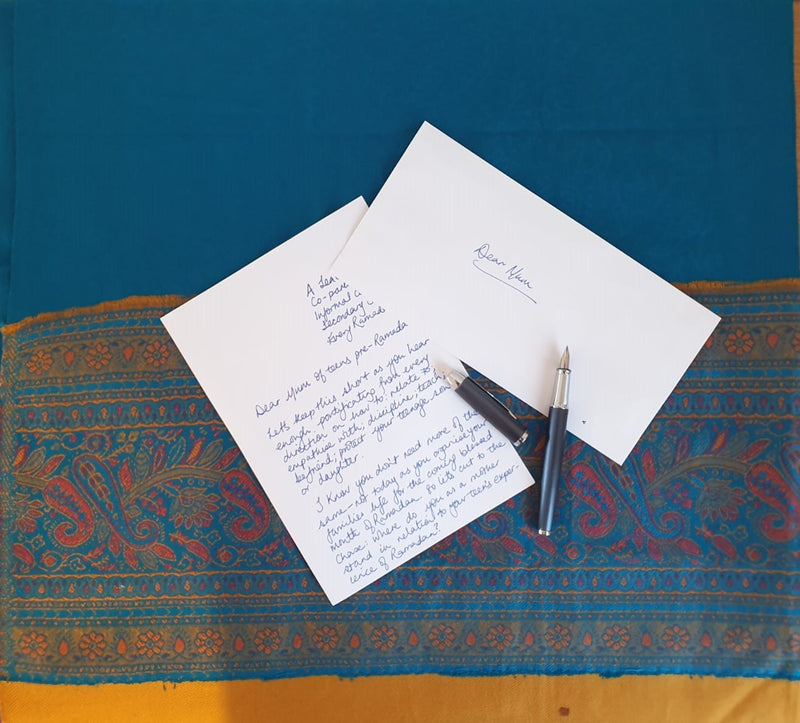 Dear Mum
A
Co-pare
Informal
Secondary
Every Ramad
Dear Mum of teens pre-Ramada
Let's keep this short as you hear
enough pontificating from every
direction on how to: relate to,
empathise with, discipline, teach
befriend, protect your teenage son
or daughter.
I know you didn't need more of the
same – not today as you organise your
families life for the coming blessed
month of Ramadan. So lets cut to the
chase: where do you as a mother
stand in relation to your teen's exper-
ience of Ramadan?